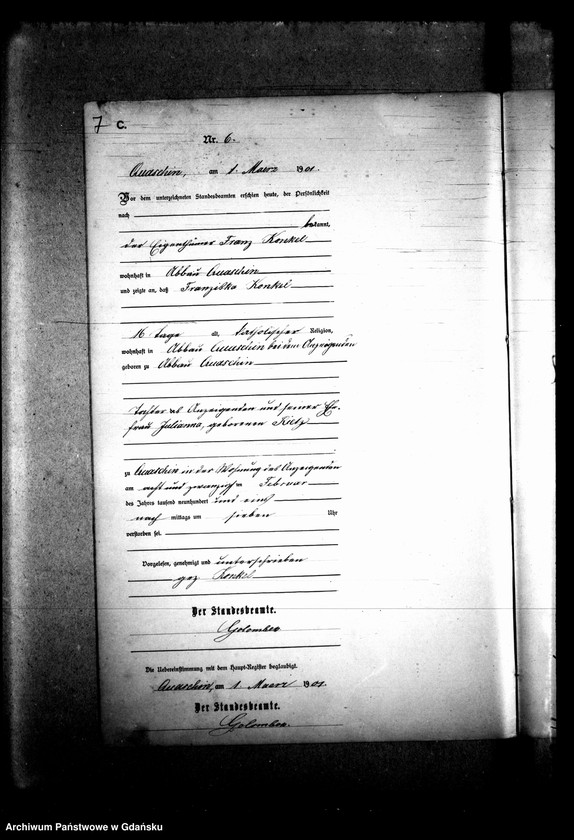 7 C.
Nr. 6.
Quaschin, am 1. Maerz 1901.
Vor dem unterzeichneten Standesbeamten erschien heute, der Persönlichkeit
nach
bekannt,
der Eigenthümer Franz Konkel
wohnhaft in Abbau Quaschin
und zeigte an, daß Franziska Konkel
16 Tage alt, katholischer Religion,
wohnhaft in Abbau Quaschin bei dem Anzeigenden
geboren zu Abbau Quaschin
Tochter des Anzeigenden und seiner Ehe-
frau Julianna, geborenen
zu Quaschin in der Wohnung des Anzeigenden
am acht und zwanzigsten Februar
des Jahres tausend neunhundert und eins
nach mittags um sieben Uhr
verstorben sei.
Vorgelesen, genehmigt und unterschrieben
gez. Konkel
Der Standesbeamte.
Die Uebereinstimmung mit dem Haupt-Register beglaubigt.
Quaschin, am 1. Maerz 1901.
Der Standesbeamte.
Archiwum Państwowe w Gdańsku